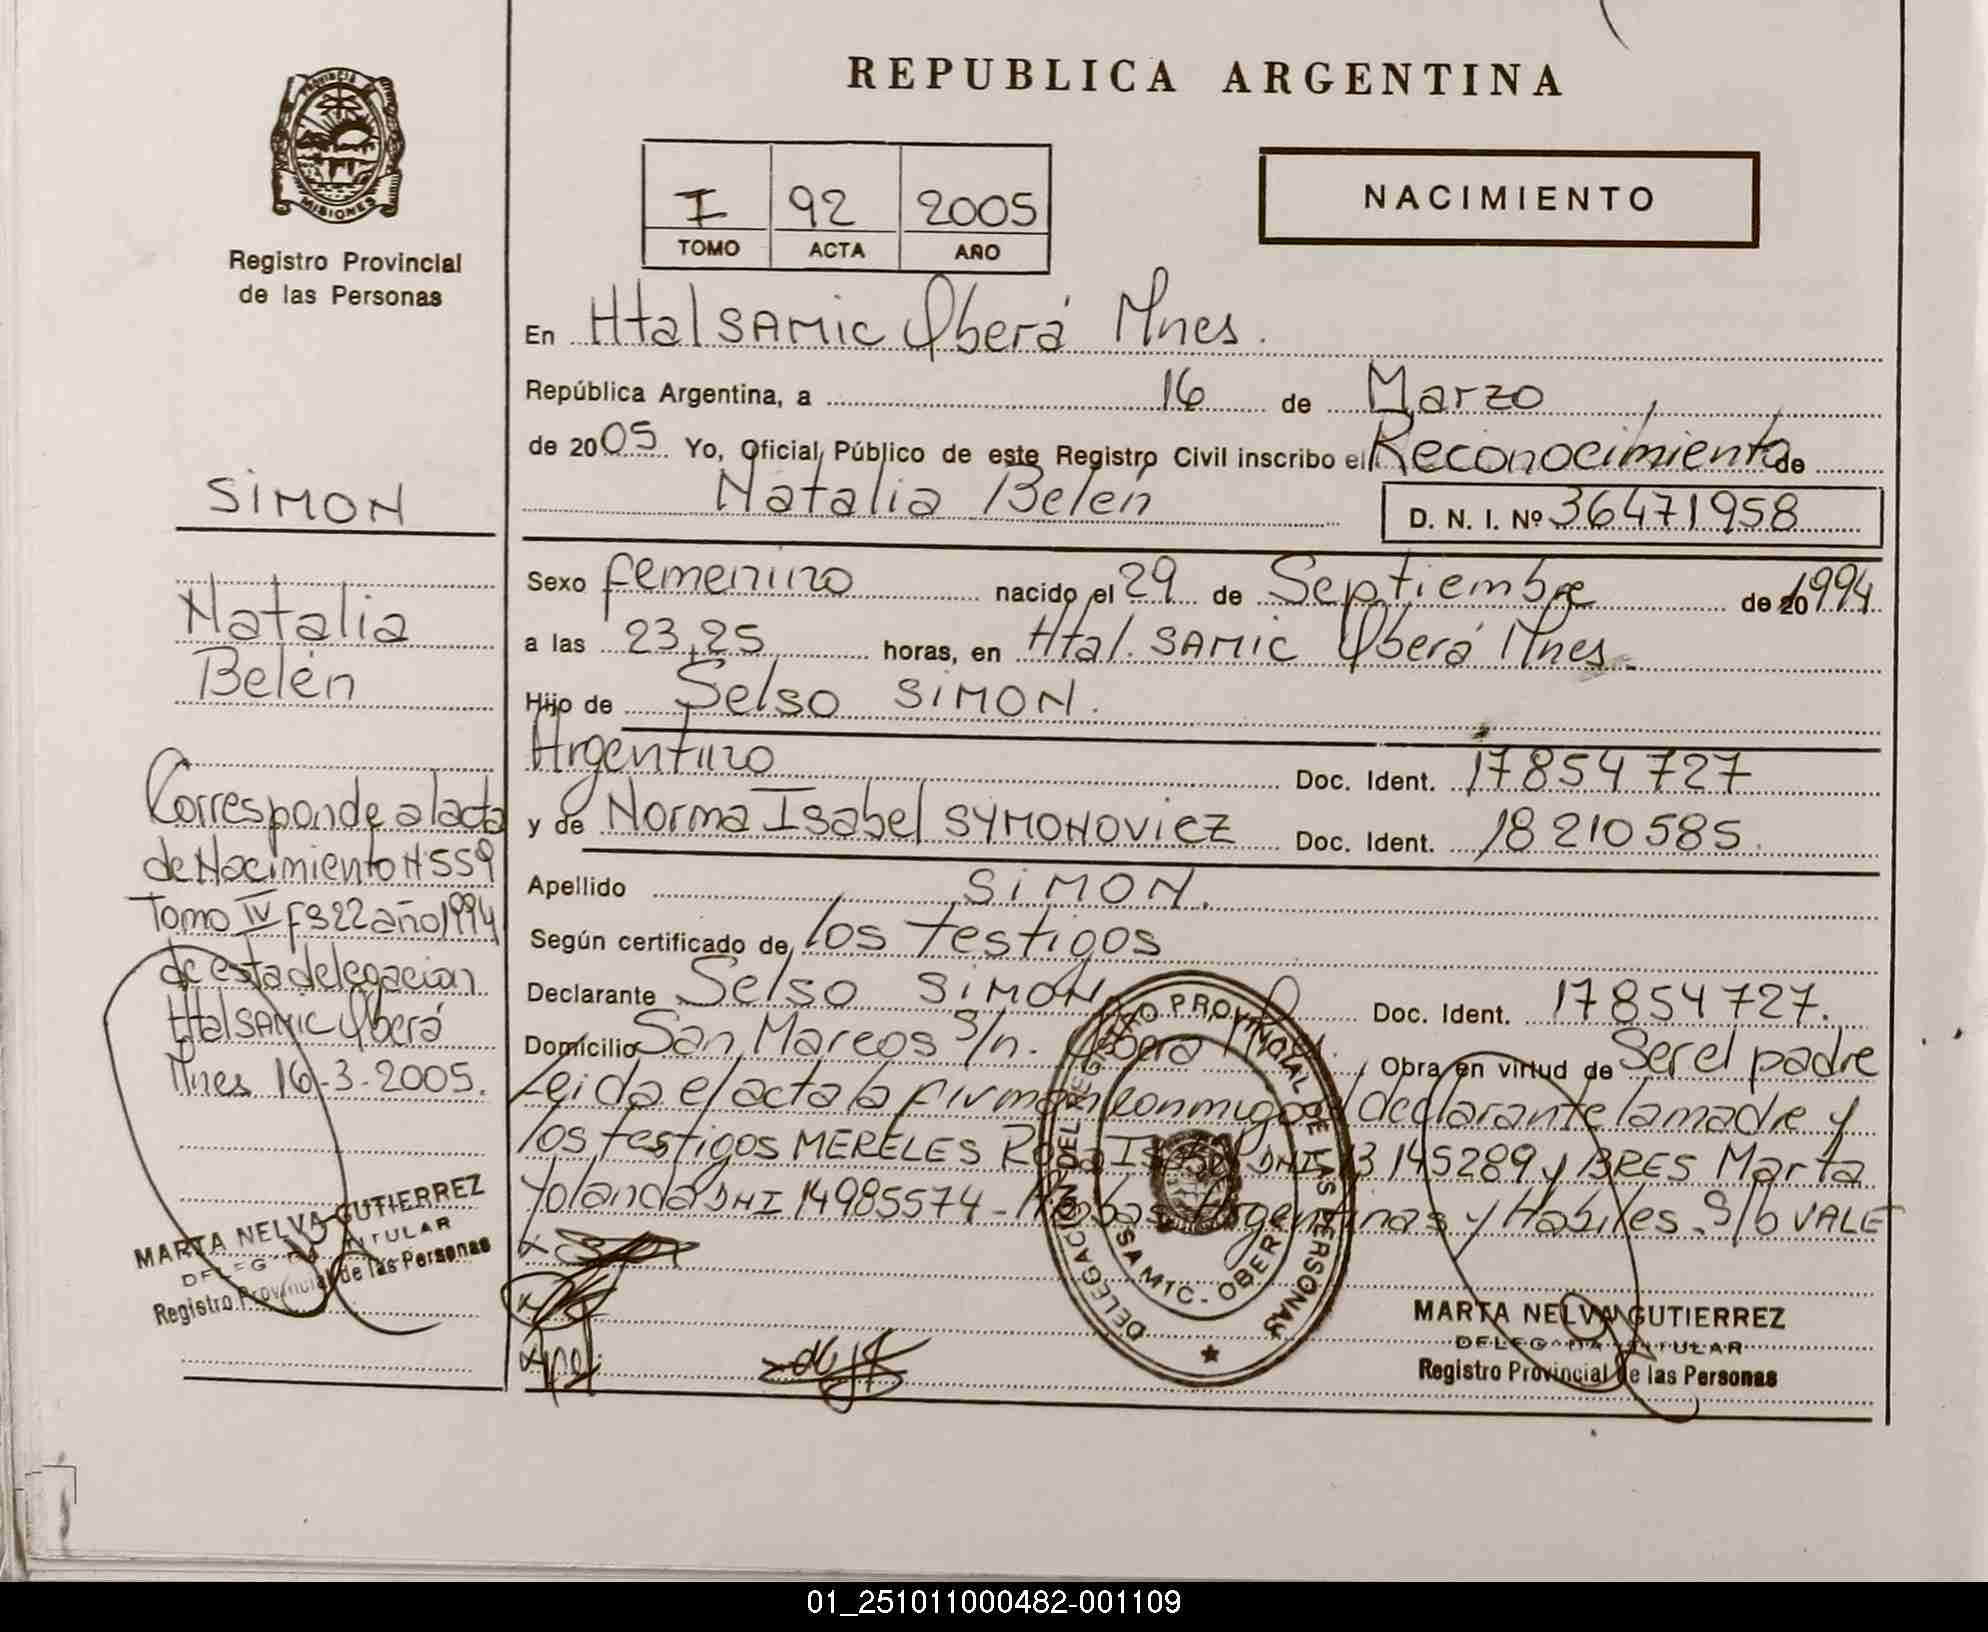 REPUBLICA ARGENTINA
PROVINCIA
MISIONES
Registro Provincial
de las Personas
I 92 2005
TOMO ACTA AÑO
NACIMIENTO
En Htal SAMIC Oberá Mnes.
República Argentina, a 16 de Marzo
de 2005 Yo, Oficial Público de este Registro Civil inscribo el Reconocimiento de
Natalia Belén D. N. I. Nº 36471958
Sexo femenino nacido el 29 de Septiembre de 20 1994
a las 23,25 horas, en Htal. SAMIC Oberá Mnes.
Hijo de Selso SIMON.
Argentino Doc. Ident. 17854727
y de Norma Isabel SYMONOVICZ Doc. Ident. 18210585.
Apellido SIMON.
Según certificado de los testigos
Declarante Selso SIMON Doc. Ident. 17854727.
Domicilio San Marcos S/n. Oberá Obra en virtud de Ser el padre
Leida el acta la firman conmigo el declarante la madre y
los testigos MERELES Rosa DNI 13145289 y BRES Marta
Yolanda DNI 14985574 - Ambas Argentinas y Habiles. S/b VALE
SIMON
Natalia
Belén
Corresponde al acta
de Nacimiento N 559
Tomo IV Fs 22 año 1994
de esta delegacion
Htal SAMIC Oberá
Mnes 16-3-2005.
MARTA NELVA GUTIERREZ
DELEGADA TITULAR
Registro Provincial de las Personas
DELEGACION DEL REGISTRO PROVINCIAL DE LAS PERSONAS
SAMIC - OBERA
MARTA NELVA GUTIERREZ
DELEGADA TITULAR
Registro Provincial de las Personas
01_251011000482-001109